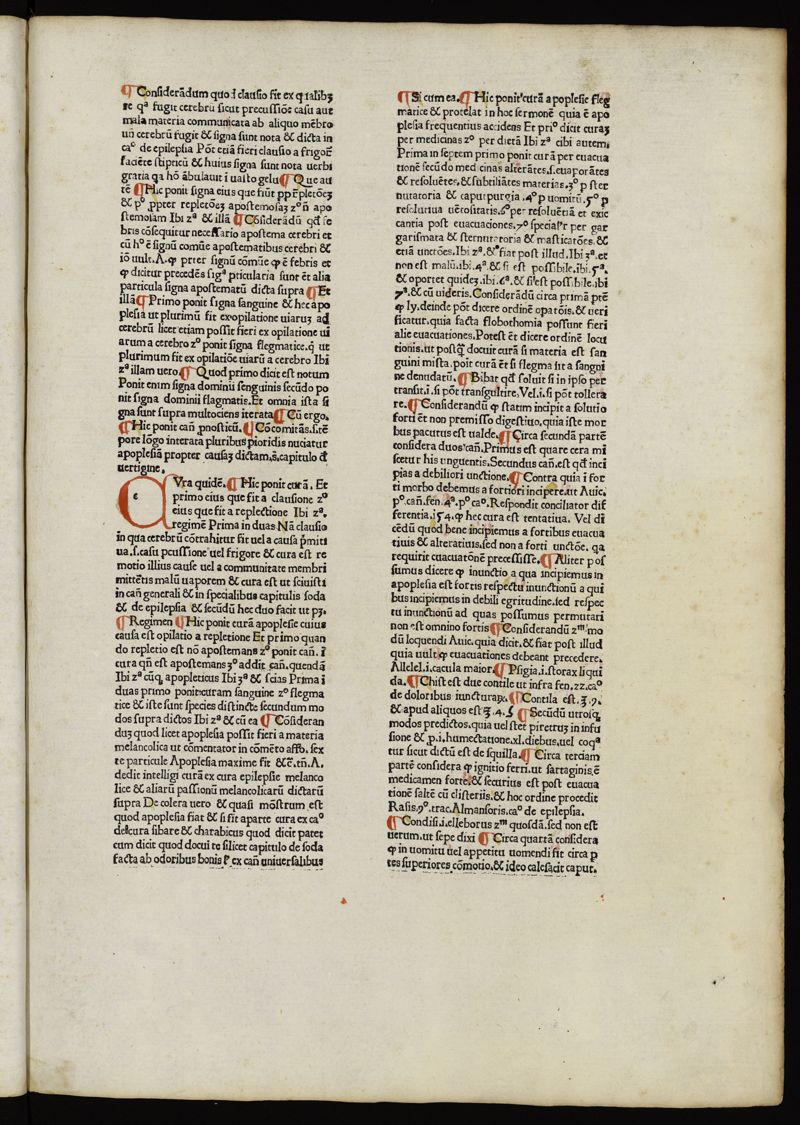 ¶ Considerādum quo i clausio fit ex
re qª fugit cerebrū sicut precussiōe casu aut
mala materia communicata ab aliquo mēbro
un cerebrū fugit & signa sunt nota & dicta in
caº de epilepsia Pōt etiā fieri clausio a frigore
faciēte stipticū & huius signa sunt nota uerbi
gratia qa hō ābulauit i uasto gelu ¶ Que au
tē ¶ Hic ponit signa eius que fiūt pp repletōeʒ
& pº ppter repletōeʒ apostemosaʒ zº ñ apo
stemosam Ibi zª & illā ¶ Cōsiderādū qd fe
bris cōsequitur necessario apostema cerebri et
cū hº ē signū comūe apostematibus cerebri &
iō uult .A. ꝙ preter signū cōmūe ꝙ ē febris et
ꝙ dicitur precedēs sigª pticularia sunt et alia
particula signa apostematū dicta supra ¶ Et
illā ¶ Primo ponit signa sanguine & hec apo
plesia ut plurimū fit ex opilatione uiaruʒ ad
cerebrū licet etiam possit fieri ex opilatione ui
arum a cerebro zº ponit signa flegmatice. q̄ ut
plurimum fit ex opilatiōe uiarū a cerebro Ibi
zª illam uero ¶ Quod primo dicit est notum
Ponit enim signa dominii senguinis secūdo po
nit signa dominii flagmatis. Et omnia ista si
gna sunt supra multociens iterata ¶ Cū ergo.
¶ Hic ponit cañ pnosticū. ¶ Cōcomitās .s. tē
pore lōgo interata pluribus pioridis nuciatur
apoplesia propter causaʒ dictam .s. capitulo đ
uertigine.
CVra quidē. ¶ Hic ponit curā. Et
primo eius que fit a clausione zº
eius que fit a repletione Ibi zª.
regimē Prima in duas Nā clausio
in qua cerebrū cōtrahitur fit uel a causa pmiti
ua .s. casu pcussione uel frigore & cura est re
motio illius cause uel a communitate membri
mittētis malū uaporem & cura est ut sciuisti
in cañ generali & in specialibus capitulis soda
& de epilepsia & secūdū hec duo facit ut pʒ.
¶ Regimen ¶ Hic ponit curā apoplesie cuius
causa est opilatio a repletione Et primo quan
do repletio est nō apostemans zº ponit cañ. i
cura qñ est apostemans 3º addit cañ. quendā
Ibi zª cūq̄ apopleticus Ibi 3ª & scias Prima i
duas primo ponit curam sanguine zº flegma
tice & iste sunt species distincte secundum mo
dos supra dictos Ibi zª & cū ea ¶ Cōsideran
duʒ quod licet apoplesia possit fieri a materia
melancolica ut cōmentator in cōmēto affo. sex
te particule Apoplesia maxime fit &c̄. tñ .A.
dedit intelligi curā ex cura epilepsie melanco
lice & aliarū passionū melancolicarū dictarū
supra De colera uero & quasi mōstrum est
quod apoplesia fiat & si fit aparte cura ex caº
de cura sibare & charabicus quod dicit patet
cum dicit quod docui te silicet capitulo de soda
facta ab odoribus bonis ex cañ uniuersalibus
¶ Si cum ea. ¶ Hic ponit curā apoplesie fleg
matice & protelat in hoc sermonē quia ē apo
plesia frequentius accidens Et priº dicit curaʒ
per medicinas zº per dietā Ibi zª cibi autem
Prima in septem primo ponit curā per euacua
tionē secūdo medicinas alterātes .s. euaporātes
& resoluētes. & subtiliātes materias. 3º p ster
nutatoria & caputpurgia. 4º p uomitū. 5º p
resolutiua uētositatis. 6º per resoluētiā et exic
cantia post euacuationes. 7º specialr per gar
garismata & sternutatoria & masticatōes. &
etiā unctiōes. Ibi zª. & fiat post illud. Ibi 3ª. et
non est malū. ibi. 4ª. & si est possibile. ibi. 5ª.
& oportet quideʒ. ibi. 6ª. & si est possibile. ibi
7ª. & cū uideris. Considerādū circa primā ptē
ꝙ ly. deinde pōt dicere ordinē opatōis. & ueri
ficatur. quia facta flobothomia possunt fieri
alie euacuationes. Potest et dicere ordinē locu
tionis. ut postq̄ docuit curā si materia est san
guini mista. poit curā et si flegma sit a sangui
ne denudatū. ¶ Bibat qd soluit si in ipso per
transit .i. si pōt transgultire. Vel .i. si pōt tollera
re. ¶ Considerandū ꝙ statim incipit a solutio
forti et non premisso digestiuo, quia iste mor
bus pacutus est ualde. ¶ Circa secundā partē
considera duos cañ. Primus est quare cera mi
scetur his unguentis. Secundus cañ. est qd inci
pias a debiliori unctione. ¶ Contra quia i for
ti morbo debemus a fortiori incipere. ut Auic.
pº. cañ. fen. 4ª. pº caº. Respondit conciliator dif
ferentia .154. ꝙ hec cura est tentatiua. Vel di
cēdū quod bene incipiemus a fortibus euacua
tiuis & alteratiuis. sed non a forti unctōe. qa
requirit euacuatōnē precessisse. ¶ Aliter pos
sumus dicere ꝙ inunctio a qua incipiemus in
apoplesia est fortis respectu inunctionū a qui
bus incipiemus in debili egritudine. sed respec
tu inunctionū ad quas possumus permutari
non est omnino fortis ¶ Considerandū zm mo
dū loquendi Auic. quia dicit. & fiat post illud
quia uult ꝙ euacuationes debeant precedere.
Allelel .i. cacula maior. ¶ Psigia .i. storax liqui
da. ¶ Chist est due contile ut infra fen. zz. caº
de doloribus iuncturaꝝ. ¶ Contila est. ʒ. 9.
& apud aliquos est ʒ. 4. ¶ Secūdū utrosq̄
modos predictos. quia uel stet piretruʒ in infu
sione & p .i. humectatione .xl. diebus. uel coqª
tur sicut dictū est de squilla. ¶ Circa terciam
partē considera ꝙ ignitio ferri. ut sartaginis. ē
medicamen forte. & securius est post euacua
tionē saltē cū clisteriis. & hoc ordine procedit
Rasis. 9º. trac. Almansoris. caº de epilepsia.
¶ Condisi .i. elleborus zm quosdā. sed non est
uerum. ut sepe dixi ¶ Circa quartā considera
ꝙ in uomitu uel appetitu uomendi fit circa p
tes superiores cōmotio. & ideo calefacit caput.